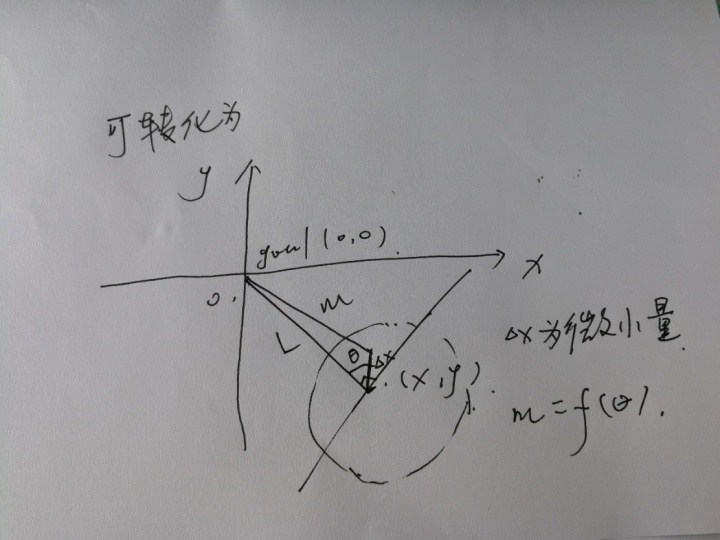 可转化为
y
goal (0,0)
x
0.
m
L
θ
Δx
(x,y)
Δx为微小量.
m=f(θ).